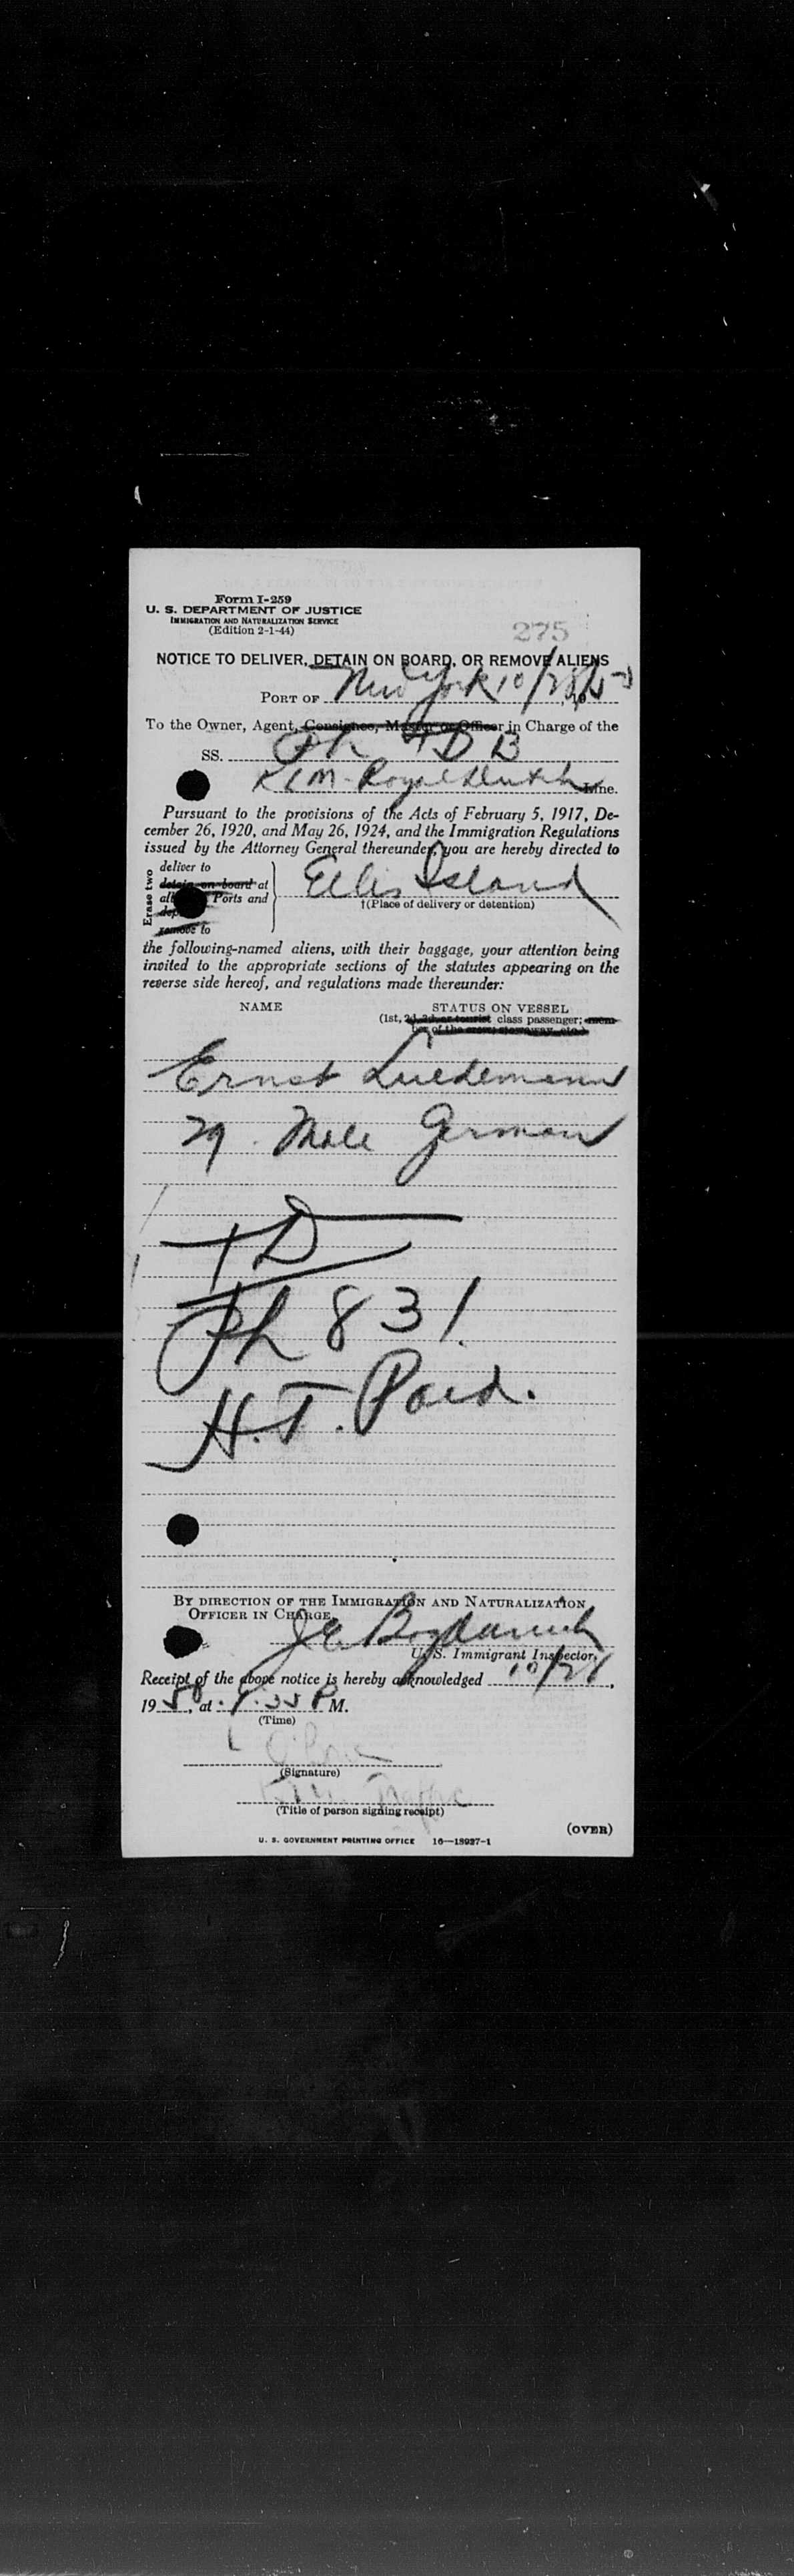 Form I-259
U. S. DEPARTMENT OF JUSTICE
IMMIGRATION AND NATURALIZATION SERVICE
(Edition 2-1-44)
275
NOTICE TO DELIVER, DETAIN ON BOARD, OR REMOVE ALIENS
PORT OF New York 10/28/50
To the Owner, Agent, Consignee, Master or Officer in Charge of the
SS. Ph TDB
KLM-Royal Dutch Line.
Pursuant to the provisions of the Acts of February 5, 1917, De-
cember 26, 1920, and May 26, 1924, and the Immigration Regulations
issued by the Attorney General thereunder, you are hereby directed to
Erase two
deliver to
detain on board at
Ports and
remove to
Ellis Island
†(Place of delivery or detention)
the following-named aliens, with their baggage, your attention being
invited to the appropriate sections of the statutes appearing on the
reverse side hereof, and regulations made thereunder:
NAME STATUS ON VESSEL
(1st, 2d, 3d, or tourist class passenger; mem-
ber of the crew, stowaway, etc.)
Ernst Luedemann
29. Male German
TD
Ph 831.
H.T. Paid.
BY DIRECTION OF THE IMMIGRATION AND NATURALIZATION
OFFICER IN CHARGE,
U. S. Immigrant Inspector.
Receipt of the above notice is hereby acknowledged 10/28,
1950, at P M.
(Time)
(Signature)
KLM Traffic
(Title of person signing receipt)
(OVER)
U. S. GOVERNMENT PRINTING OFFICE 16—18927-1